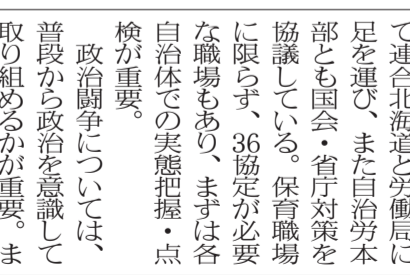 て連合北海道と労働局に
足を運び、また自治労本
部とも国会・省庁対策を
協議している。保育職場
に限らず、36協定が必要
な職場もあり、まずは各
自治体での実態把握・点
検が重要。
政治闘争については、
普段から政治を意識して
取り組めるかが重要。ま